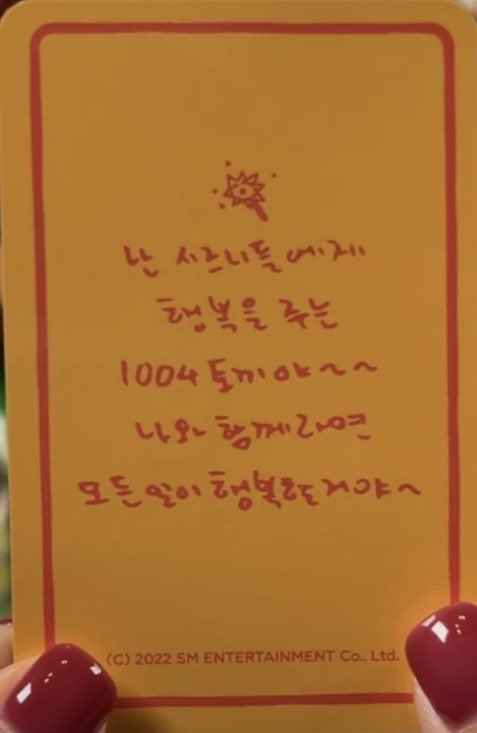 난 시즈니들에게
행복을 주는
1004 토끼야~~
나와 함께라면
모든 일이 행복할거야~
(C) 2022 SM ENTERTAINMENT Co., Ltd.